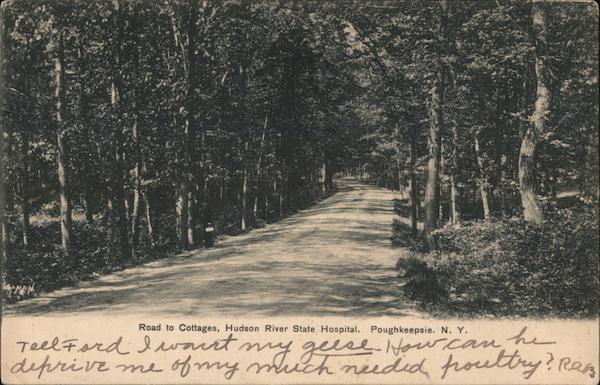 Road to Cottages, Hudson River State Hospital. Poughkeepsie. N. Y.
Tell Ford I want my geese. How can he
deprive me of my much needed poultry?